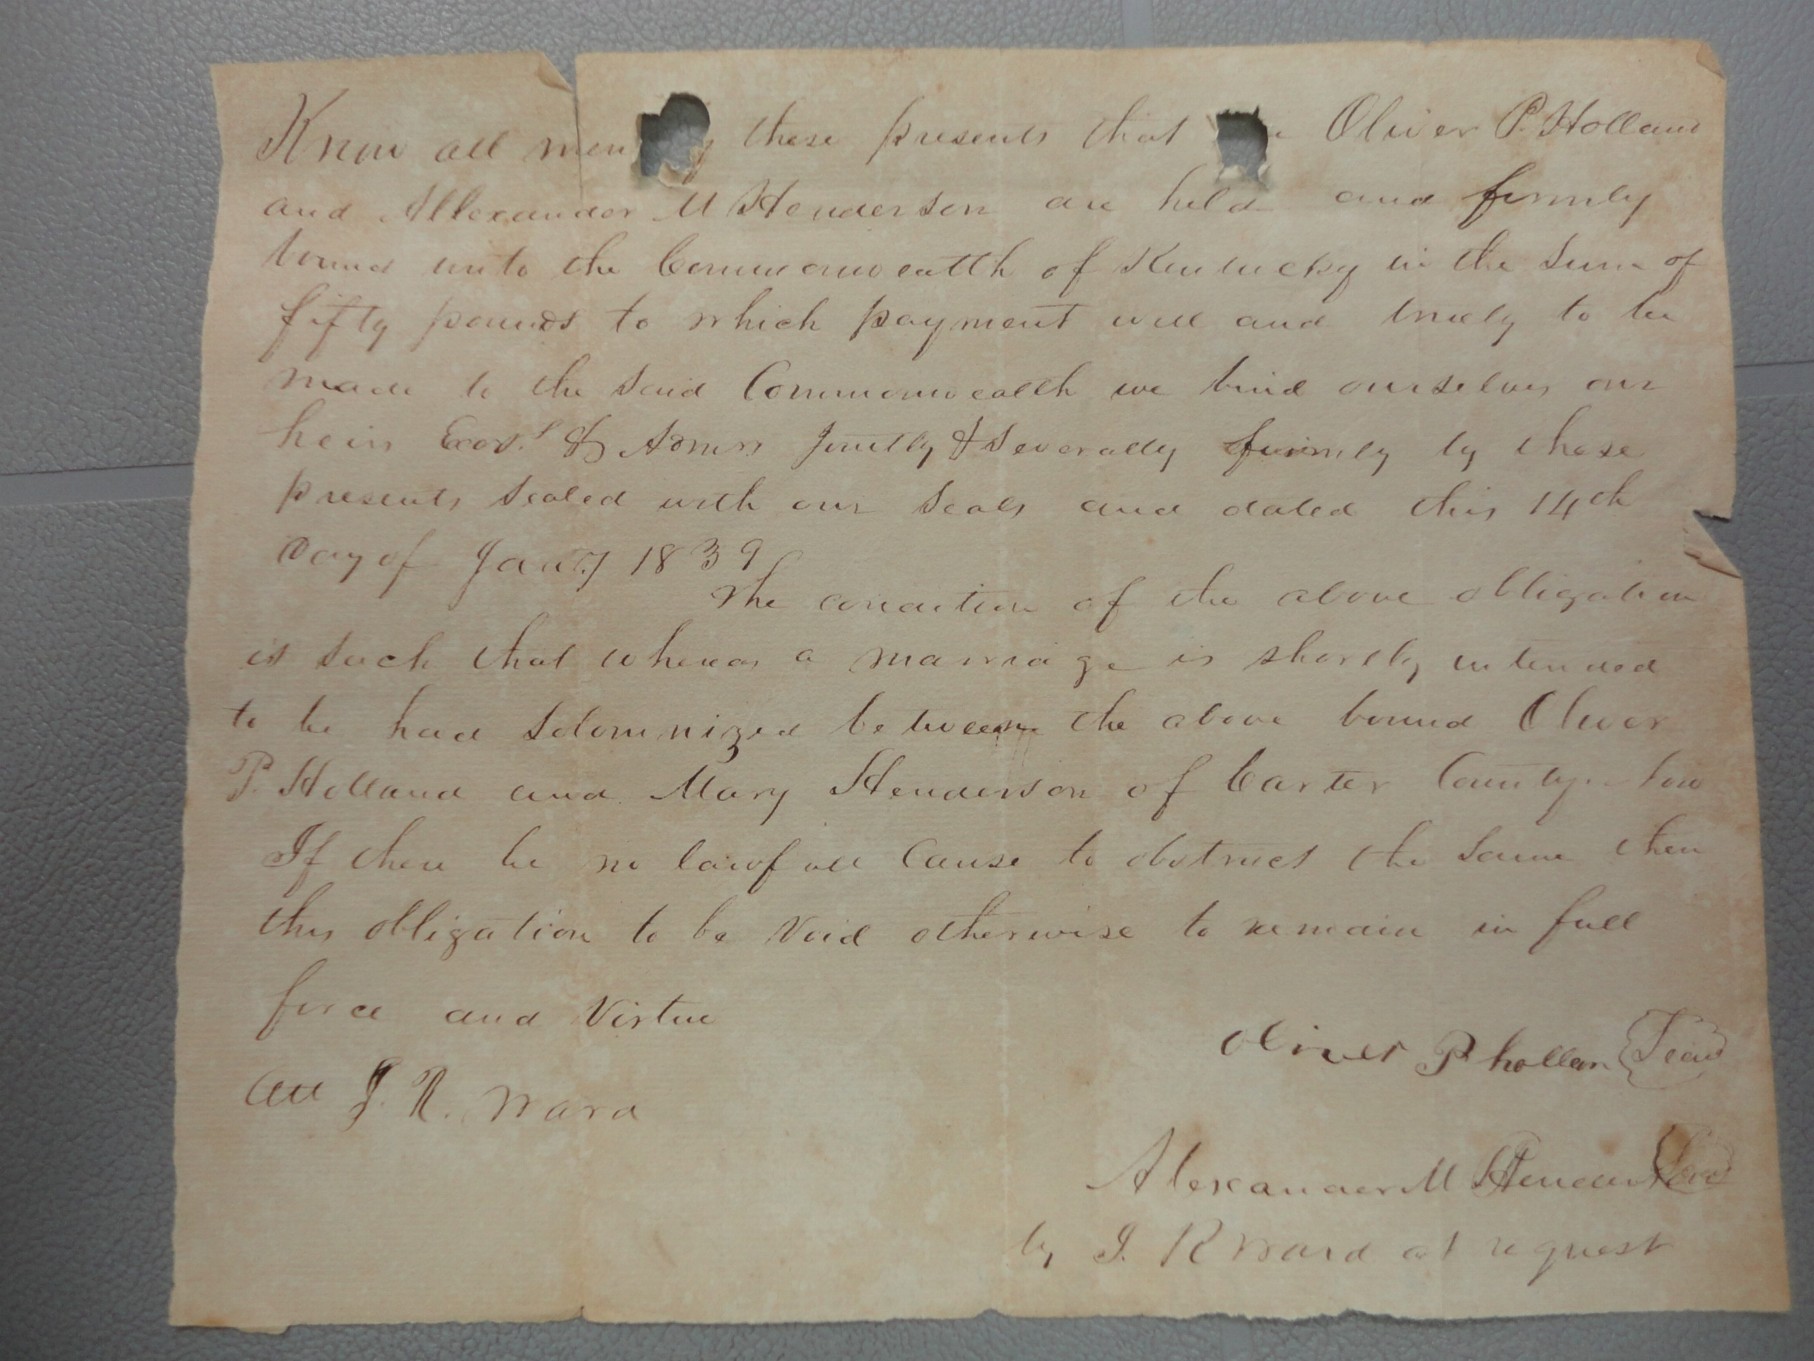 Know all men these presents that Oliver P. Holland
and Allexander M Henderson are held and firmly
bound unto the Commonwealth of Kentucky in the sum of
fifty pounds to which payment well and truely to be
made to the said Commonwealth we bind ourselves our
heirs Exors. & Admrs jointly & Severally firmly by these
presents sealed with our seals and dated this 14th
Day of Jany 1839
The condition of the above obligation
is such that whereas a marriage is shortly intended
to be had Solomnized between the above bound Oliver
P. Holland and Mary Henderson of Carter County. Now
If there be no lawfull Cause to obstruct the same then
this obligation to be void otherwise to remain in full
force and Virtue
Oliver P hollan Seal
Att J. R. Ward
Alexander M Henderson Seal
by J. R Ward at request